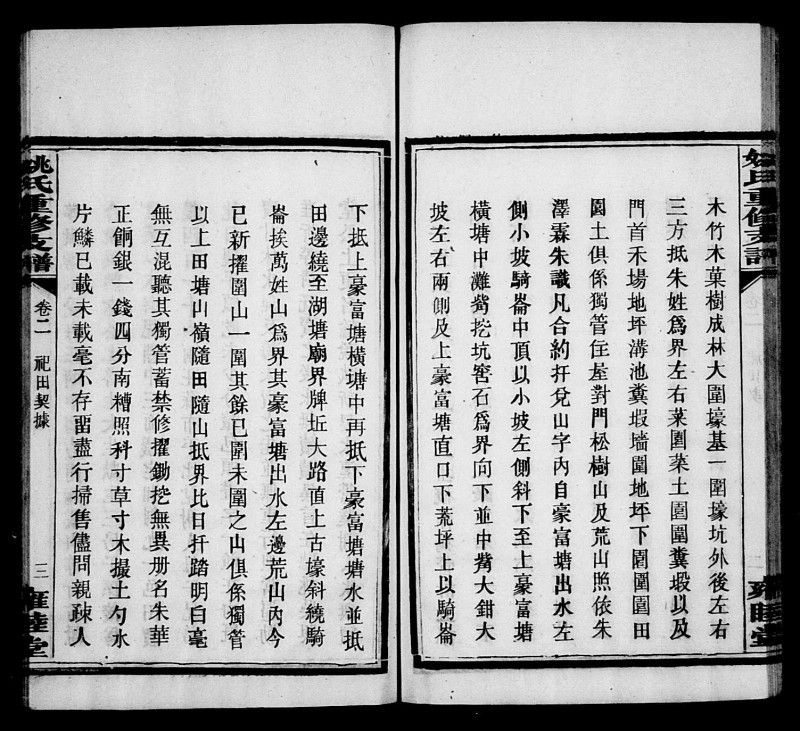 木竹木菓樹成林大圍壕基一圍壕坑外後左右
三方抵朱姓爲界左右菜園菜土園圍糞塅以及
門首禾場地坪溝池糞塅墻圍地坪下園圍園田
園土俱係獨管住屋對門松樹山及荒山照依朱
澤霖朱議凡合約扦兌山字內自豪富塘出水左
側小坡騎崙中頂以小坡左側斜下至上豪富塘
橫塘中灘觜挖坑窖石爲界向下並中觜大鉗大
坡左右兩側及上豪富塘直口下荒坪上以騎崙
下抵上豪富塘橫塘中再抵下豪富塘塘水並抵
田邊繞至湖塘廟界牌坵大路直上古壕斜繞騎
崙挨萬姓山爲界其豪富塘出水左邊荒山內今
已新擢圍山一圍其餘已圍未圍之山俱係獨管
以上田塘山嶺隨田隨山抵界比日扦踏明白毫
無互混聽其獨管蓄禁修擢鋤挖無異册名朱華
正餉銀一錢四分南糟照科寸草寸木撮土勺水
片鱗已載未載毫不存畱盡行掃售儘問親疎人
姚氏重修支譜
卷二
祀田契據
三
雍睦堂